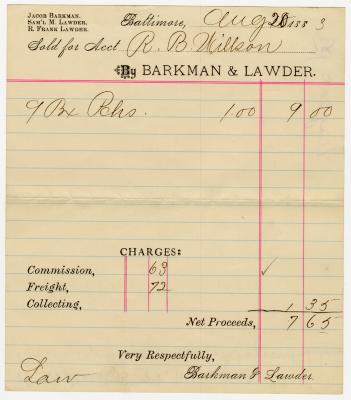 JACOB BARKMAN.
SAM'L M. LAWDER.
R. FRANK LAWDER.
Baltimore, Aug 20 1883
Sold for Acct R. B. Willson
By BARKMAN & LAWDER.
9 Bx Phs. 1.00 9 00
CHARGES:
Commission, 63
Freight, 72
Collecting, 1 35
Net Proceeds, 7 65
Very Respectfully,
Barkman & Lawder.
Law